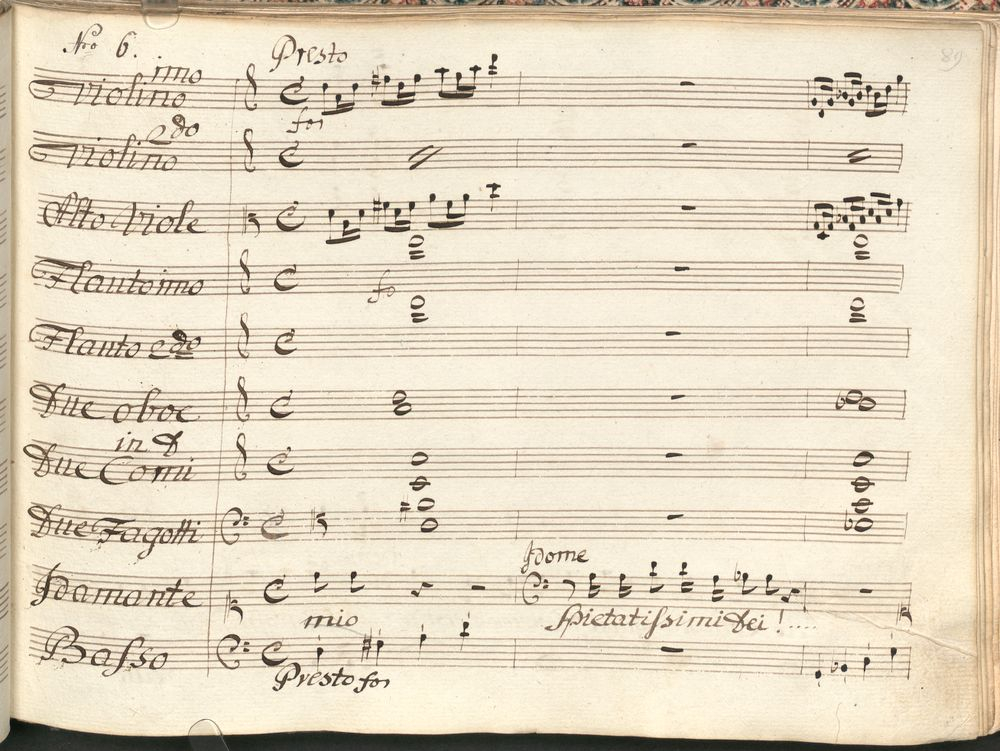 Nro 6.
Presto
89
imo
Violino
for
2do
Violino
Alto Viole
Flauto imo
fo
Flauto 2do
Due oboe
in D
Due Corni
Due Fagotti
Idome
Idamante
mio
Spietatissimi Dei! ....
Basso
Presto for